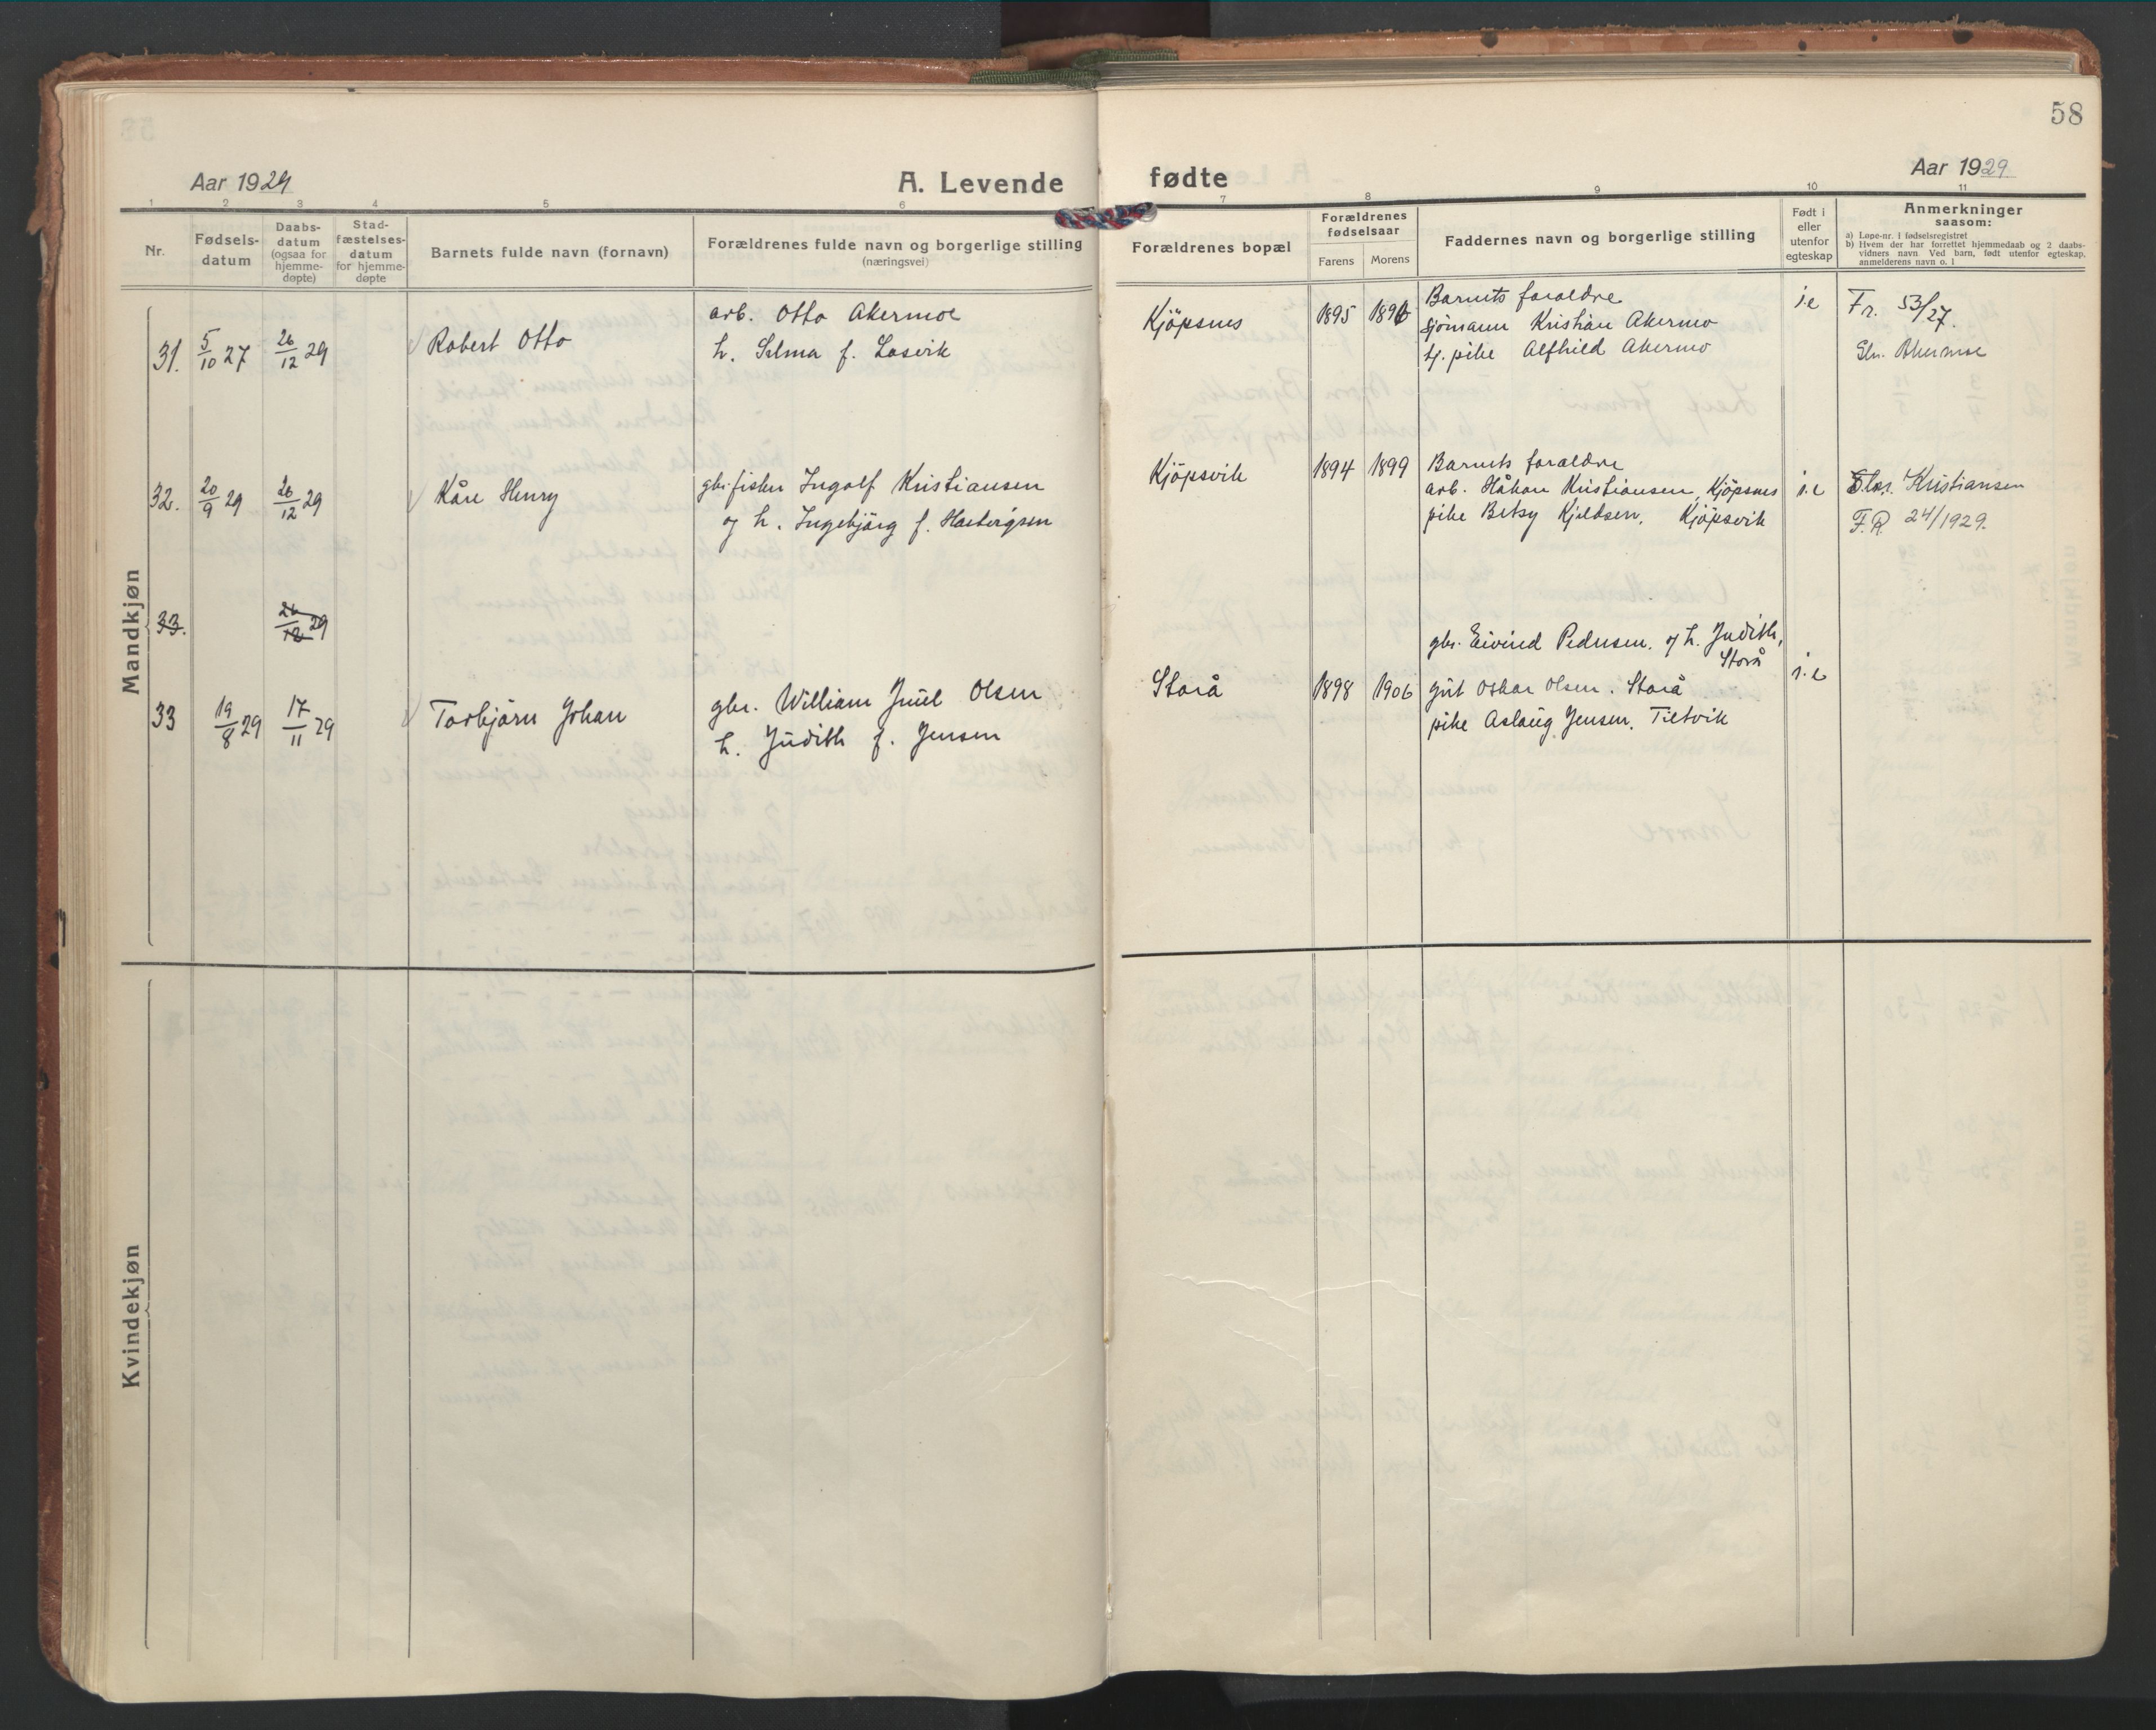 58
Aar 1929
A. Levende
fødte
Aar 1929.
1 2 3 4 5 6 7 8 9 10 11
Nr.
Fødsels-
datum
Daabs-
datum
(ogsaa for
hjemme-
døpte)
Stad-
fæstelses-
datum
for hjemme-
døpte
Barnets fulde navn (fornavn)
Forældrenes fulde navn og borgerlige stilling
(næringsvei)
Forældrenes bopæl
Forældrenes
fødselsaar
Farens Morens
Faddernes navn og borgerlige stilling
Født i
eller
utenfor
egteskap
Anmerkninger
saasom:
a) Løpe-nr. i fødselsregistret
b) Hvem der har forrettet hjemmedaab og 2 daabs-
vidners navn. Ved barn, født utenfor egteskap,
anmelderens navn o. l
Mandkjøn
31. 5/10 27 26/12 29 Robert Otto
arb. Otto Akermoe
h. Selma f. Losvik
Kjöpsnes 1895 1896
Barnets foraldre
sjömann Kristian Akermo
tj. pike Alfhild Akermo
i.e
Fr. 53/27.
Sln. Akermoe
32. 20/9 29 26/12 29 Kåre Henry
gbr. fisker Ingolf Kristiansen
og h. Ingebjörg f. Hartvigsen
Kjöpsvik 1894 1899
Barnets foraldre
arb. Håkon Kristiansen, Kjöpsnes
pike Betsy Kjeldsen, Kjöpsvik
i.e
Sln. Kristiansen
F.R. 24/1929.
33. 26/12 29
33 19/8 29 17/11 29 Torbjörn Johan
gbr. William Juul Olsen
h. Judith f. Jensen
Storå 1898 1906
gbr. Eivind Pedersen. og h. Judith,
Storå
gut Oskar Olsen. Storå
pike Aslaug Jensen. Tiltvik
i.e
Kvindekjøn